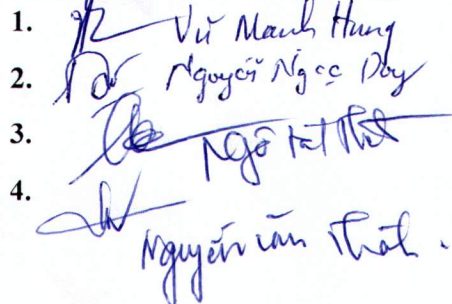 1. Vũ Mạnh Hùng
2. Nguyễn Ngọc Duy
3. Ngô Tất
4. Nguyễn Văn